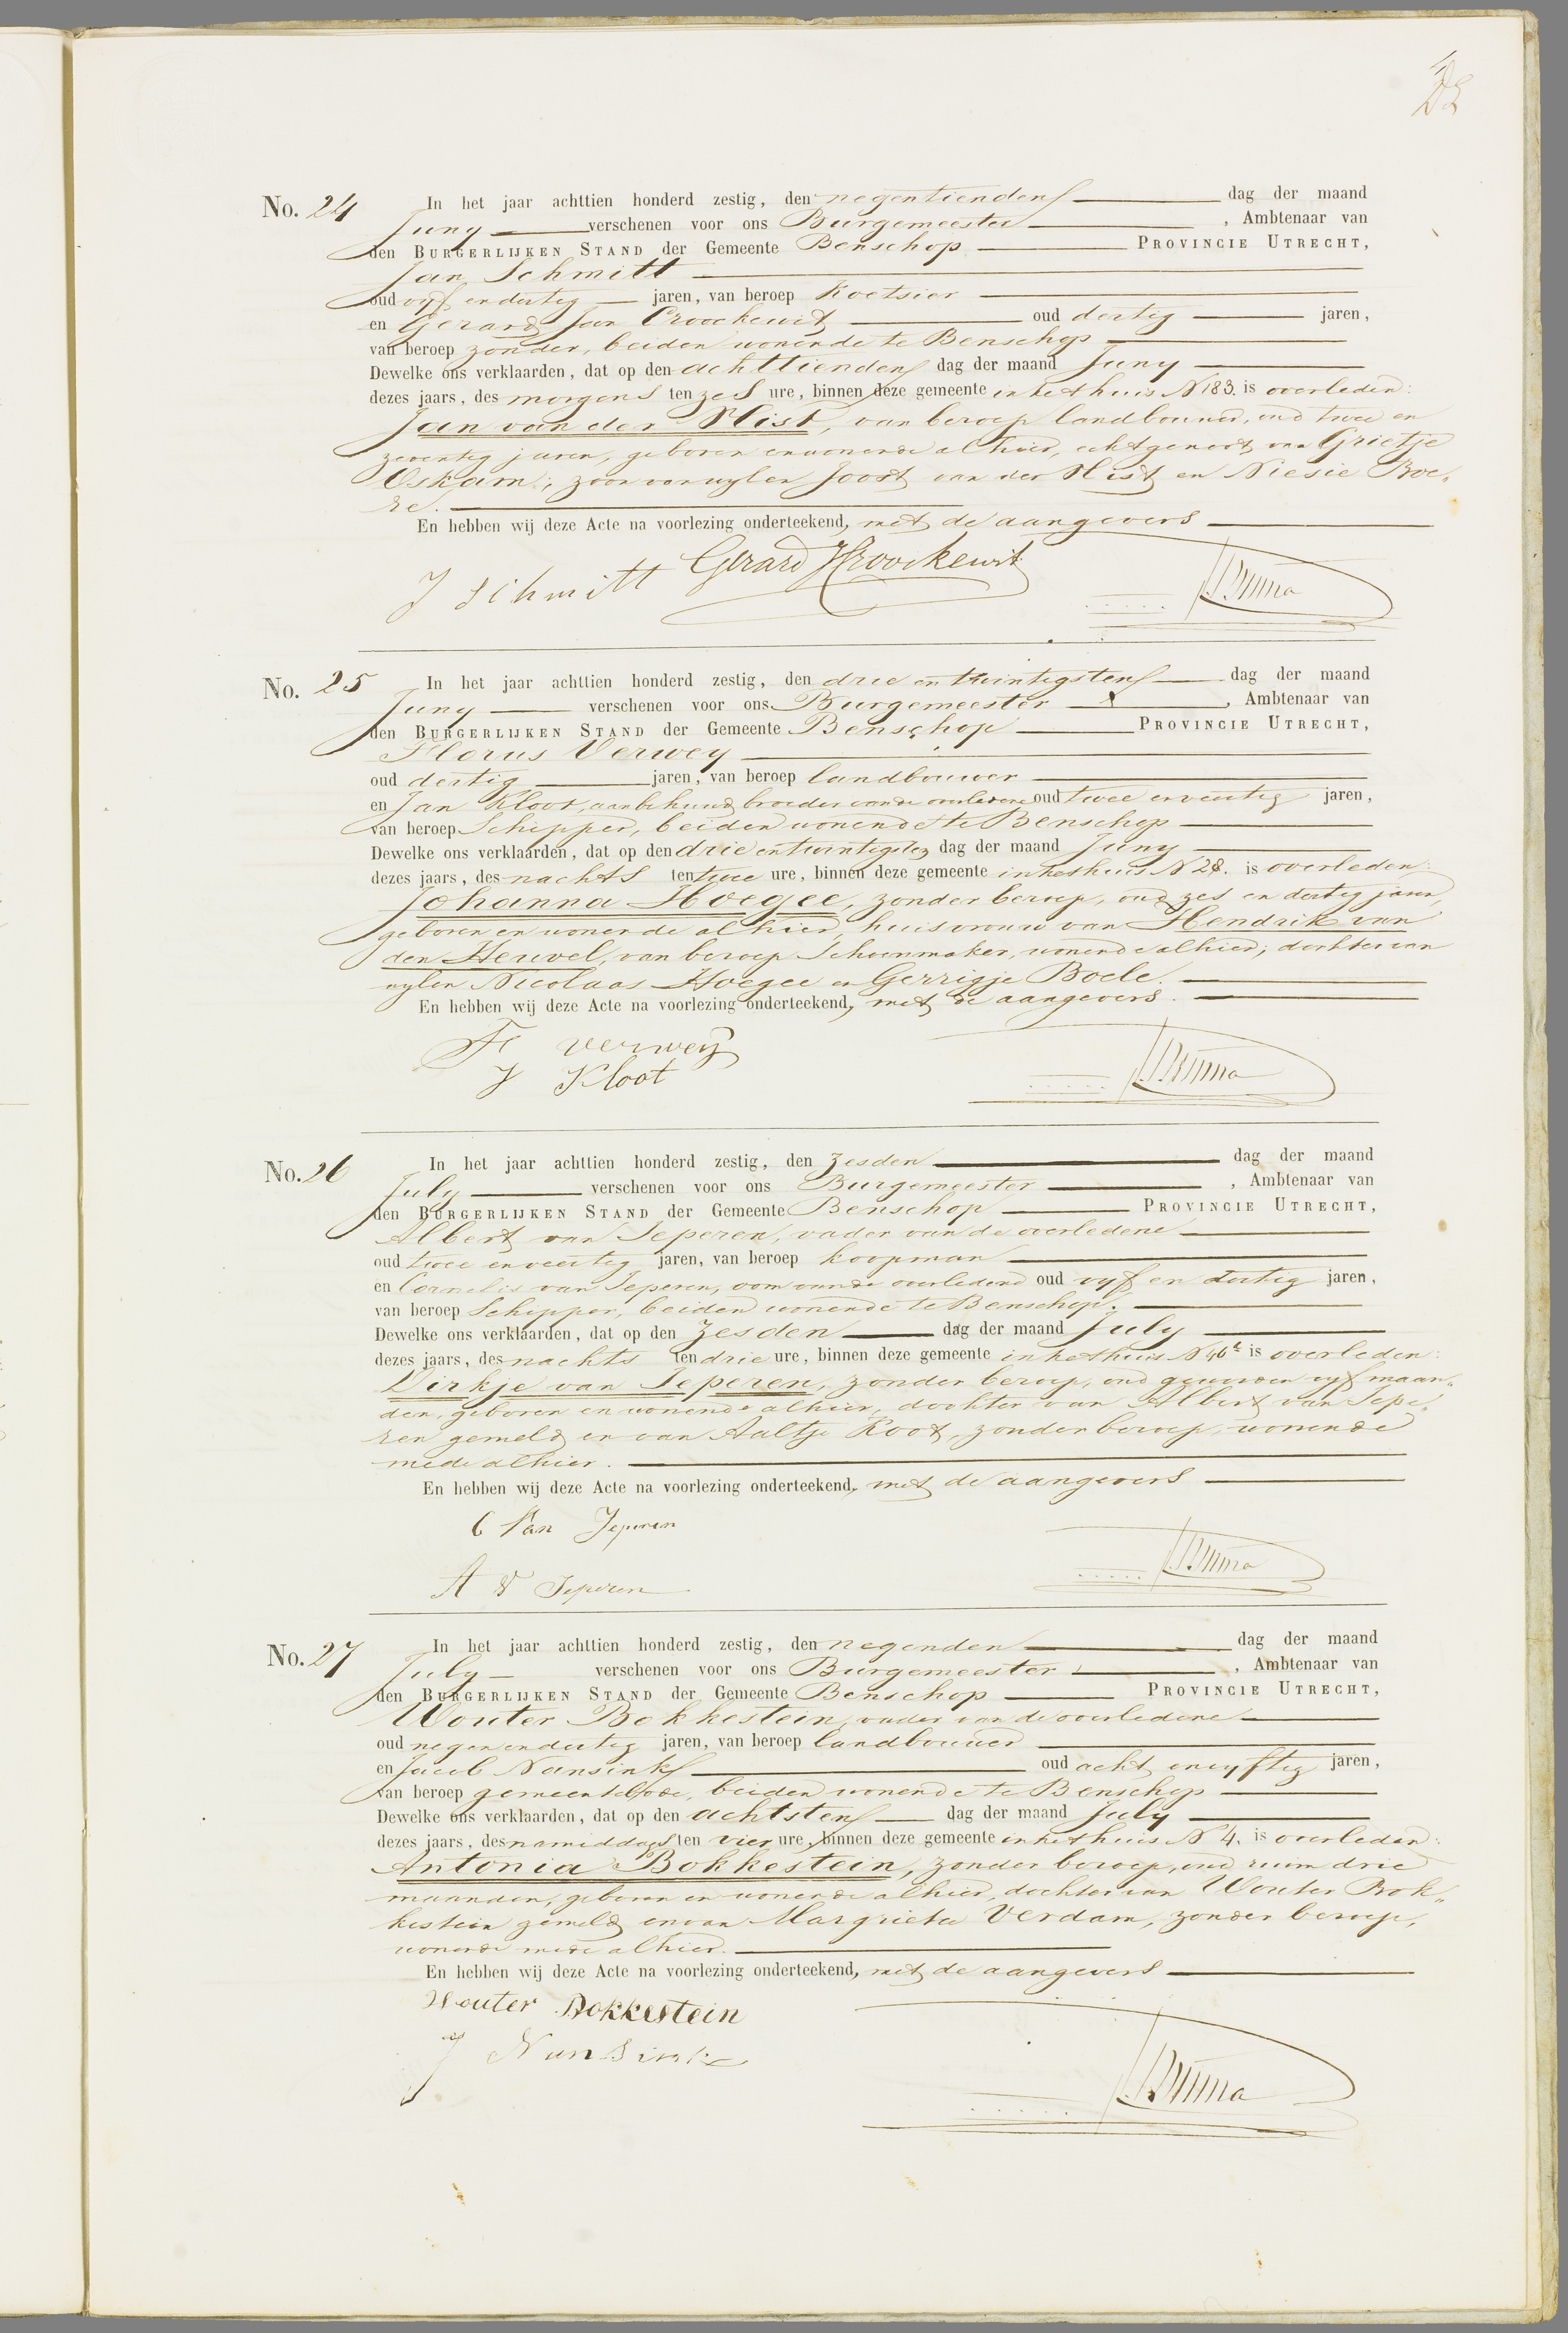 No. 24
In het jaar achttien honderd zestig, den negentienden dag der maand
Juny verschenen voor ons Burgemeester, Ambtenaar van
den BURGERLIJKEN STAND der Gemeente Benschop PROVINCIE UTRECHT,
Jan Schmitt
oud vyf en dertig jaren, van beroep Koetsier
en Gerard Jan Croockewit oud dertig jaren,
van beroep zonder, beiden wonende te Benschop
Dewelke ons verklaarden, dat op den achttienden dag der maand Juny
dezes jaars, des morgens ten zes ure, binnen deze gemeente in het huis N 183. is overleden:
Jan van der Hist, van beroep landbouwer, oud twee en
zeventig jaren, geboren en wonende alhier, echtgenoot van Grietje
Oskam; zoon van wylen Joost van der Hist en Niesie Boe„
re.
En hebben wij deze Acte na voorlezing onderteekend, met de aangevers
J Schmitt Gerard J Croockewit
No. 25
In het jaar achttien honderd zestig, den drie en twintigsten dag der maand
Juny verschenen voor ons Burgemeester, Ambtenaar van
den BURGERLIJKEN STAND der Gemeente Benschop PROVINCIE UTRECHT,
Florus Verwey
oud dertig jaren, van beroep landbouwer
en Jan Kloot, aanbehuwd broeder van de overledene oud twee en veertig jaren,
van beroep Schipper, beiden wonende te Benschop
Dewelke ons verklaarden, dat op den drie en twintigsten dag der maand Juny
dezes jaars, des nachts ten twee ure, binnen deze gemeente in het huis N 28. is overleden:
Johanna Hoegee, zonder beroep, oud zes en dertig jaren,
geboren en wonende alhier, huisvrouw van Hendrik van
den Heuvel, van beroep Schoenmaker, wonende alhier; dochter van
wylen Nicolaas Hoegee en Gerrigje Boele.
En hebben wij deze Acte na voorlezing onderteekend, met de aangevers.
Fl verweij
J Kloot
No. 26
In het jaar achttien honderd zestig, den zesden dag der maand
July verschenen voor ons Burgemeester, Ambtenaar van
den BURGERLIJKEN STAND der Gemeente Benschop PROVINCIE UTRECHT,
Albert van Ieperen, vader van de overledene
oud twee en veertig jaren, van beroep koopman
en Cornelis van Ieperen, oom van de overledene oud vyf en dertig jaren,
van beroep Schipper, beiden wonende te Benschop.
Dewelke ons verklaarden, dat op den zesden dag der maand July
dezes jaars, des nachts ten drie ure, binnen deze gemeente in het huis N 46 is overleden:
Dirkje van Ieperen, zonder beroep, oud geworden vyf maan„
den, geboren en wonende alhier, dochter van Albert van Iepe„
ren gemeld en van Aaltje Root, zonder beroep, wonende
mede alhier.
En hebben wij deze Acte na voorlezing onderteekend, met de aangevers
C Van Ieperen
A V Ieperen
No. 27
In het jaar achttien honderd zestig, den negenden dag der maand
July verschenen voor ons Burgemeester, Ambtenaar van
den BURGERLIJKEN STAND der Gemeente Benschop PROVINCIE UTRECHT,
Wouter Bokkestein, vader van de overledene
oud negen en dertig jaren, van beroep landbouwer
en Jacob Nansink oud acht en vyftig jaren,
van beroep gemeentebode, beiden wonende te Benschop
Dewelke ons verklaarden, dat op den achtsten dag der maand July
dezes jaars, des namiddags ten vier ure, binnen deze gemeente in het huis N 4. is overleden:
Antonia Bokkestein, zonder beroep, oud ruim drie
maanden, geboren en wonende alhier, dochter van Wouter Bok„
kestein gemeld en van Margrieta Verdam, zonder beroep,
wonende mede alhier.
En hebben wij deze Acte na voorlezing onderteekend, met de aangevers
Wouter Bokkestein
J Nansink